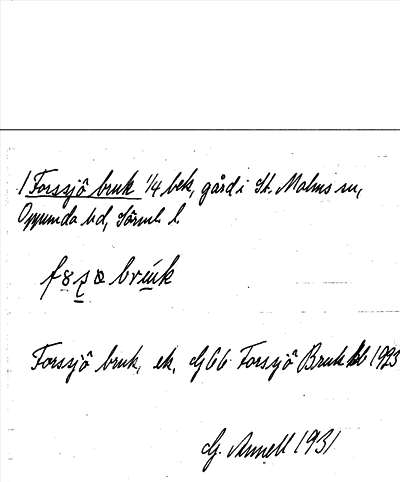 1 Forssjö bruk 1/4 bek, gård i St. Malms sn,
Oppunda hd, Sörml. l.
bruk
Forssjö bruk, ek, GGb Forssjö Bruk 1923
G. Annell 1931